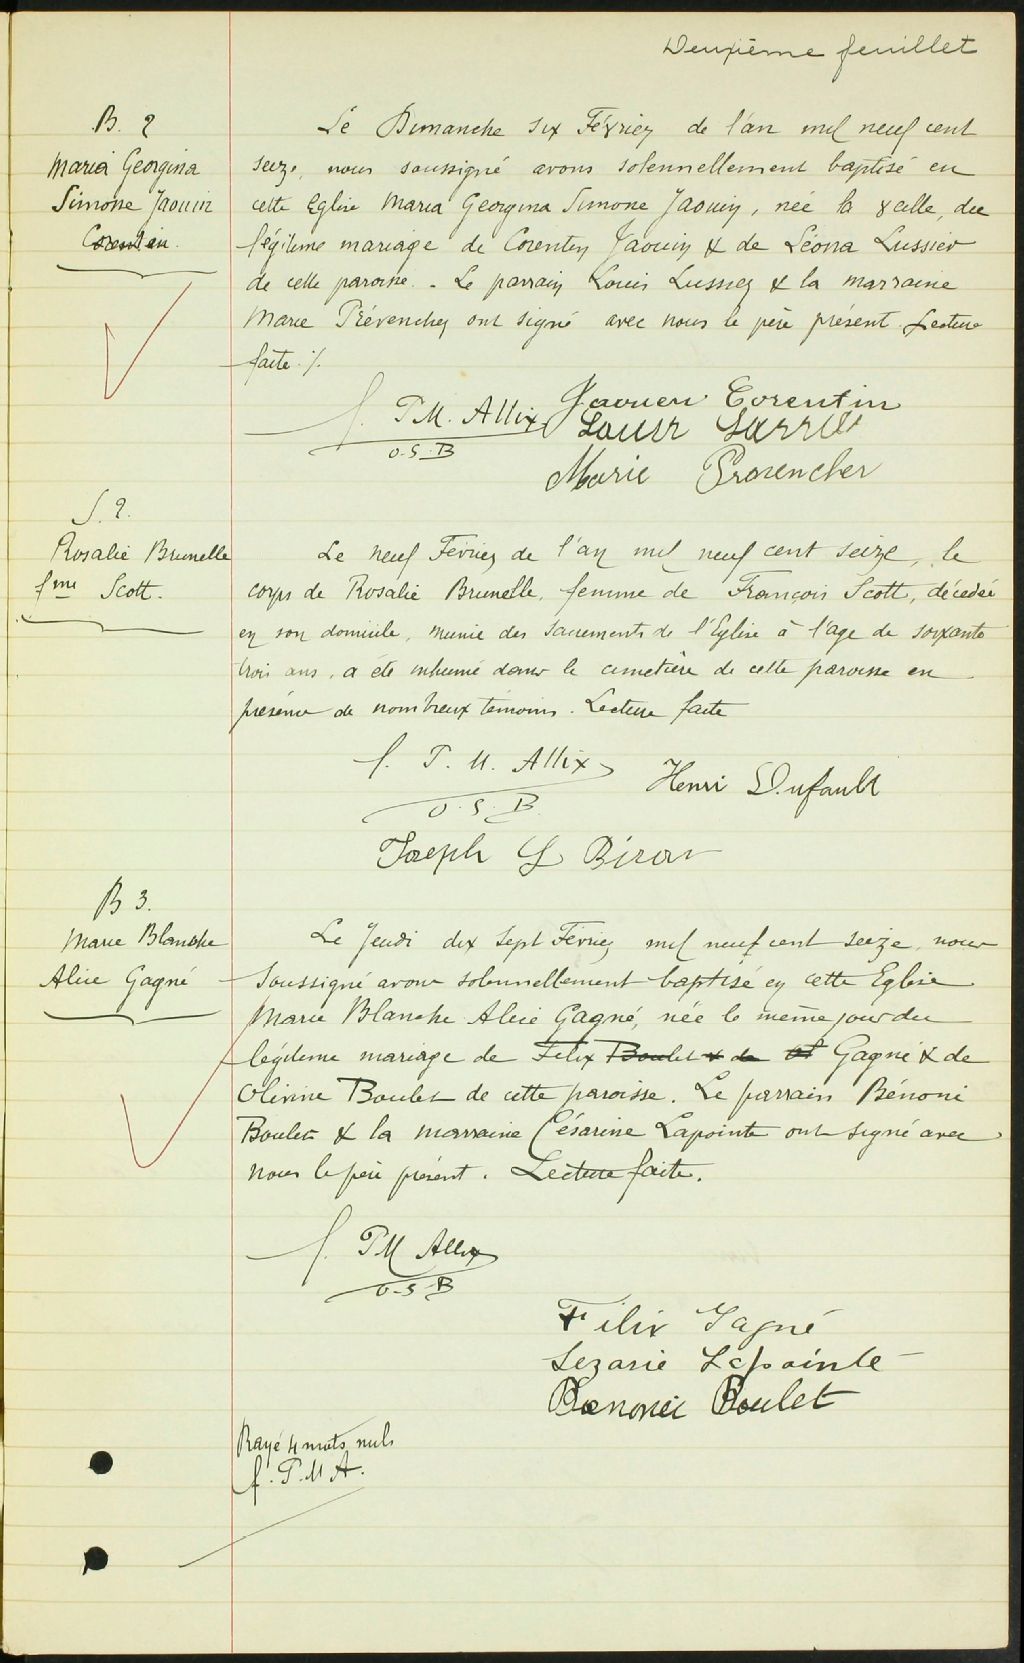 Deuxième feuillet
B. 2
Maria Georgina
Simone Jaouin
Corentin.
Le Dimanche six Février de l'an mil neuf cent
seize, nous soussigné avons solennellement baptisé en
cette Eglise Maria Georgina Simone Jaouin, née la veille, du
légitime mariage de Corentin Jaouin & de Léona Lussier
de cette paroisse. - Le parrain Louis Lussier & la marraine
Marie Prévencher ont signé avec nous le père présent. Lecture
faite ./.
f. P.M. Allix
O.S.B
Jaouen Corentin
Louir
Marie Provencher
S. 2.
Rosalie Brunelle
fme Scott.
Le neuf Février de l'an mil neuf cent seize, le
corps de Rosalie Brunelle, femme de François Scott, décédée
en son domicile, munie des sacrements de l'Eglise à l'age de soixante
trois ans, a été inhumé dans le cimetière de cette paroisse en
présence de nombreux témoins. Lecture faite
f. P. M. Allix
O.S.B.
Henri Dufault
Joseph L Biron
B 3.
Marie Blanche
Alice Gagné
Le Jeudi dix sept Février mil neuf cent seize, nous
soussigné avons solennellement baptisé en cette Eglise
Marie Blanche Alice Gagné, née le même jour du
légitime mariage de Felix Boulet & de Gagné & de
Olivine Boulet de cette paroisse. Le parrain Bénoni
Boulet & la marraine Césarine Lapointe ont signé avec
nous le père présent. Lecture faite.
f. PM Allix
O.S.B
Filix Gagné
Sezarie Lapointe
Benonei Boulet
Rayé 4 mots nuls
f. P.M A.